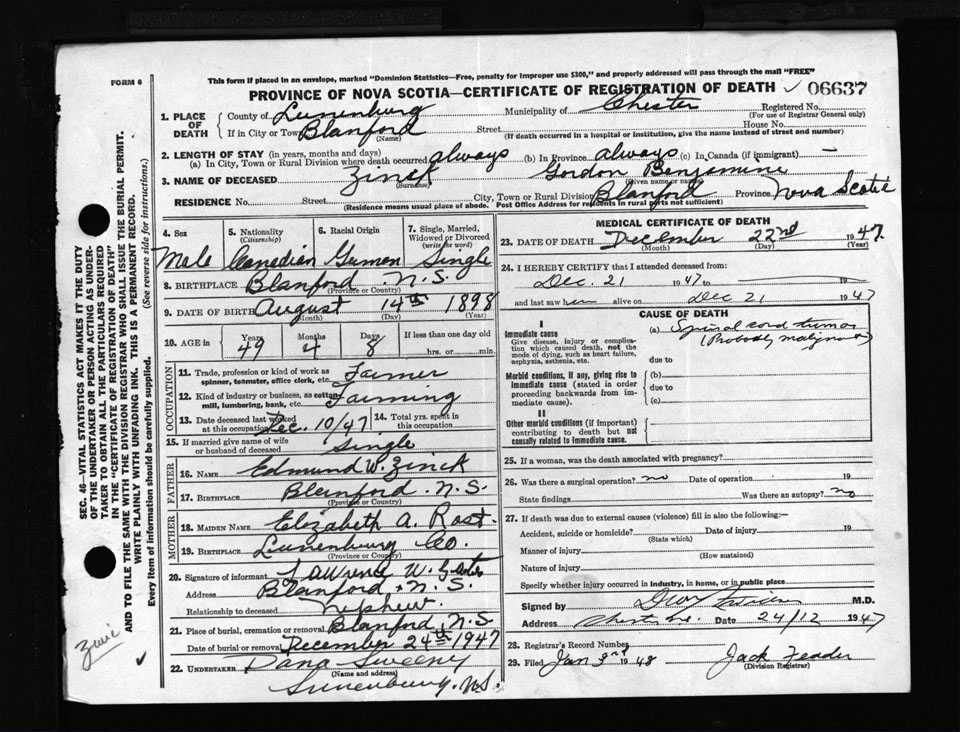 This form if placed in an envelope, marked "Dominion Statistics—Free, penalty for improper use $300," and properly addressed will pass through the mail "FREE"
FORM 6
PROVINCE OF NOVA SCOTIA—CERTIFICATE OF REGISTRATION OF DEATH ✓ 06637
1. PLACE OF DEATH { County of Lunenburg Municipality of Chester Registered No.
(For use of Registrar General only)
If in City or Town Blanford Street House No.
(Name) (If death occurred in a hospital or institution, give the name instead of street and number)
2. LENGTH OF STAY (in years, months and days)
(a) In City, Town or Rural Division where death occurred always (b) In Province always (c) In Canada (if immigrant) —
3. NAME OF DECEASED Zinck Gordon Benjamine
(Surname) (Given name or names)
RESIDENCE No. Street City, Town or Rural Division Blanford Province Nova Scotia
(Residence means usual place of abode. Post Office Address for residents in rural parts not sufficient)
4. Sex 5. Nationality (Citizenship) 6. Racial Origin 7. Single, Married, Widowed or Divorced (write the word)
Male Canadian German Single
8. BIRTHPLACE Blanford N.S.
(Province or Country)
9. DATE OF BIRTH August 14th 1898
(Month) (Day) (Year)
10. AGE in { Years Months Days If less than one day old
49 4 8 hrs. or min.
OCCUPATION
11. Trade, profession or kind of work as spinner, teamster, office clerk, etc. Farmer
12. Kind of industry or business, as cotton mill, lumbering, bank, etc. Farming
13. Date deceased last worked at this occupation Dec. 10/47 14. Total yrs. spent in this occupation
15. If married give name of wife or husband of deceased Single
FATHER
16. NAME Edmund W. Zinck
17. BIRTHPLACE Blanford N.S.
(Province or Country)
MOTHER
18. MAIDEN NAME Elizabeth A. Rast
19. BIRTHPLACE Lunenburg Co.
(Province or Country)
20. Signature of informant Lawrence W. Gates
Address Blanford N.S.
Relationship to deceased Nephew.
21. Place of burial, cremation or removal Blanford N.S
Date of burial or removal December 24th 1947
22. UNDERTAKER Dana Sweeny
(Name and address)
Lunenburg. N.S.
MEDICAL CERTIFICATE OF DEATH
23. DATE OF DEATH December 22nd 1947.
(Month) (Day) (Year)
24. I HEREBY CERTIFY that I attended deceased from:
Dec. 21 1947 to 19
and last saw alive on Dec 21 1947
CAUSE OF DEATH
I
Immediate cause (a) Spinal cord tumor
(Probably malignant)
Give disease, injury or complication which caused death, not the mode of dying, such as heart failure, asphyxia, asthenia, etc.
due to
Morbid conditions, if any, giving rise to immediate cause (stated in order proceeding backwards from immediate cause).
(b)
due to
(c)
II
Other morbid conditions (if important) contributing to death but not causally related to immediate cause.
25. If a woman, was the death associated with pregnancy?
26. Was there a surgical operation? no Date of operation 19
State findings Was there an autopsy? no
27. If death was due to external causes (violence) fill in also the following:—
Accident, suicide or homicide? Date of injury 19
(State which)
Manner of injury
(How sustained)
Nature of injury
Specify whether injury occurred in industry, in home, or in public place
Signed by M.D.
Address Chester Date 24/12 1947
28. Registrar's Record Number
29. Filed Jan 3rd 1948 Jack Feader
(Division Registrar)
SEC. 46—VITAL STATISTICS ACT MAKES IT THE DUTY
OF THE UNDERTAKER OR PERSON ACTING AS UNDERTAKER TO OBTAIN ALL THE PARTICULARS REQUIRED
IN THE "CERTIFICATE OF REGISTRATION OF DEATH"
AND TO FILE THE SAME WITH THE DIVISION REGISTRAR WHO SHALL ISSUE THE BURIAL PERMIT.
WRITE PLAINLY WITH UNFADING INK. THIS IS A PERMANENT RECORD.
Every item of information should be carefully supplied. (See reverse side for instructions.)
✓